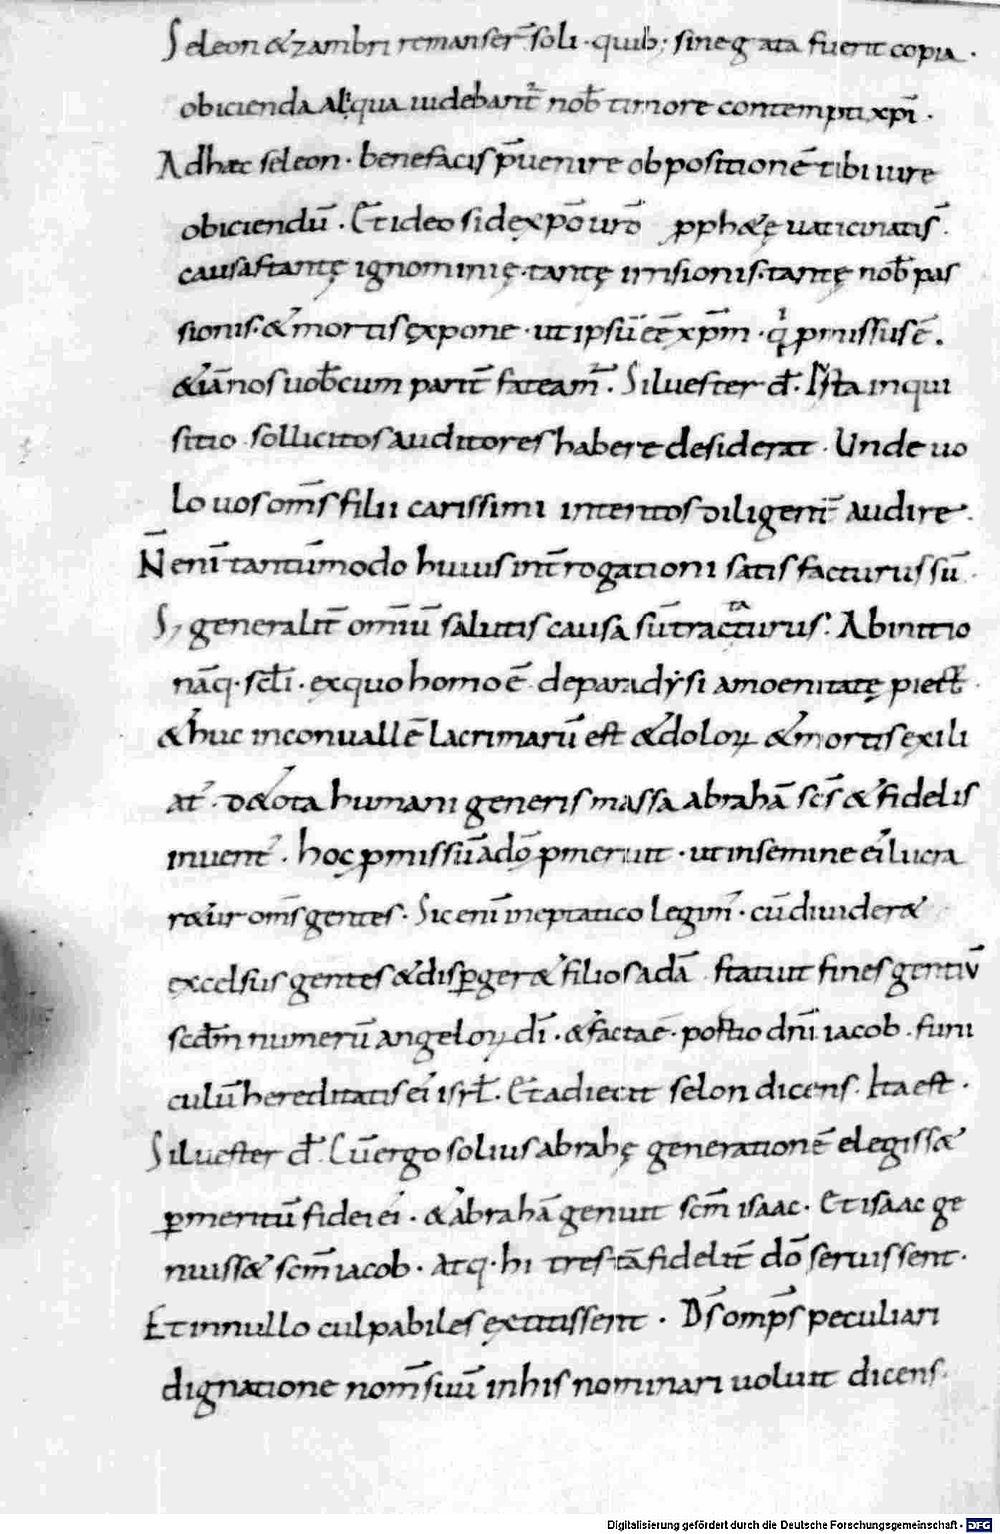 Seleon & zambri remanser̄ soli · quib; sine gata fuerit copia ·
obicienda aliqua uidebant̄ nob̄ timore contempti xp̄i ·
Adhaec seleon · benefacis p̄uenire obpositionē tibi iure
obiciendū · Et ideo si dexpō urō pph&ę uaticinatis̄ ·
causas tantę ignominię · tantę irrisionis · tantę nob̄ pas
sionis · & mortis expone · ut ipsū eē xp̄m · q pmissus ē ·
& iā nos uob̄cum parit̄ fateam̄ · Siluester d̄ · Ista inqui
sitio sollicitos auditores habere desiderat · Unde uo
lo uos om̄s filii carissimi intentos diligent̄ audire ·
N̄ eni tantūmodo huius int̄rogationi satis facturus sū ·
S; generalit̄ omīū salutis causa sū tractaturus · Ab initio
nāq · sc̄li · ex quo homo ē de paradẏsi amoenitatę piect̄ ·
& huc in conuallē lacrimarū est & doloꝝ & mortis exili
at᷒ · de tota humani generis massa abrahā sc̄s & fidelis
inuent᷒ · hoc pmissū a dō pmeruit · ut in semine ei᷒ lucra
r&ur om̄s gentes · Sic eni in eptatico legim᷒ · cū diuider&
excelsus gentes & disꝑger& filios adā statuit fines gentiū
scdm̄ numerū angeloꝝ dī · & facta ē portio dnī iacob · funi
culū hereditatis ei᷒ isrl̄ · Et adiecit selon dicens · Ita est ·
Siluester d̄ · Cū ergo solius abrahę generationē elegiss&
ꝑ meritū fidei ei᷒ · & abrahā genuit scm̄ isaac · Et isaac ge
nuiss& scm̄ iacob · Atq · hi tres tā fidelit̄ dō seruissent ·
Et in nullo culpabiles extitissent · Ds̄ omp̄s peculiari
dignatione nom̄ suū in his nominari uoluit dicens ·
Digitalisierung gefördert durch die Deutsche Forschungsgemeinschaft - DFG